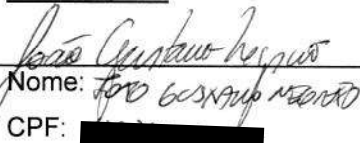 João Gustavo Negrão
Nome: JOÃO GUSTAVO NEGRÃO
CPF: